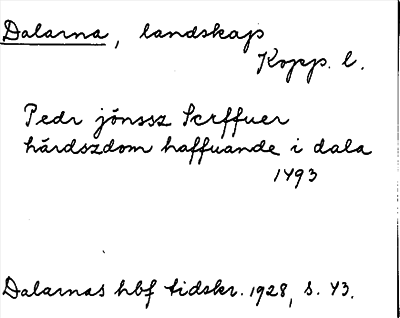 Dalarna, landskap
Kopp. l.
Pedr jönssz Scrffuer
härdszdom haffuande i dala
1493
Dalarnas hbf tidskr. 1928, s. 43.